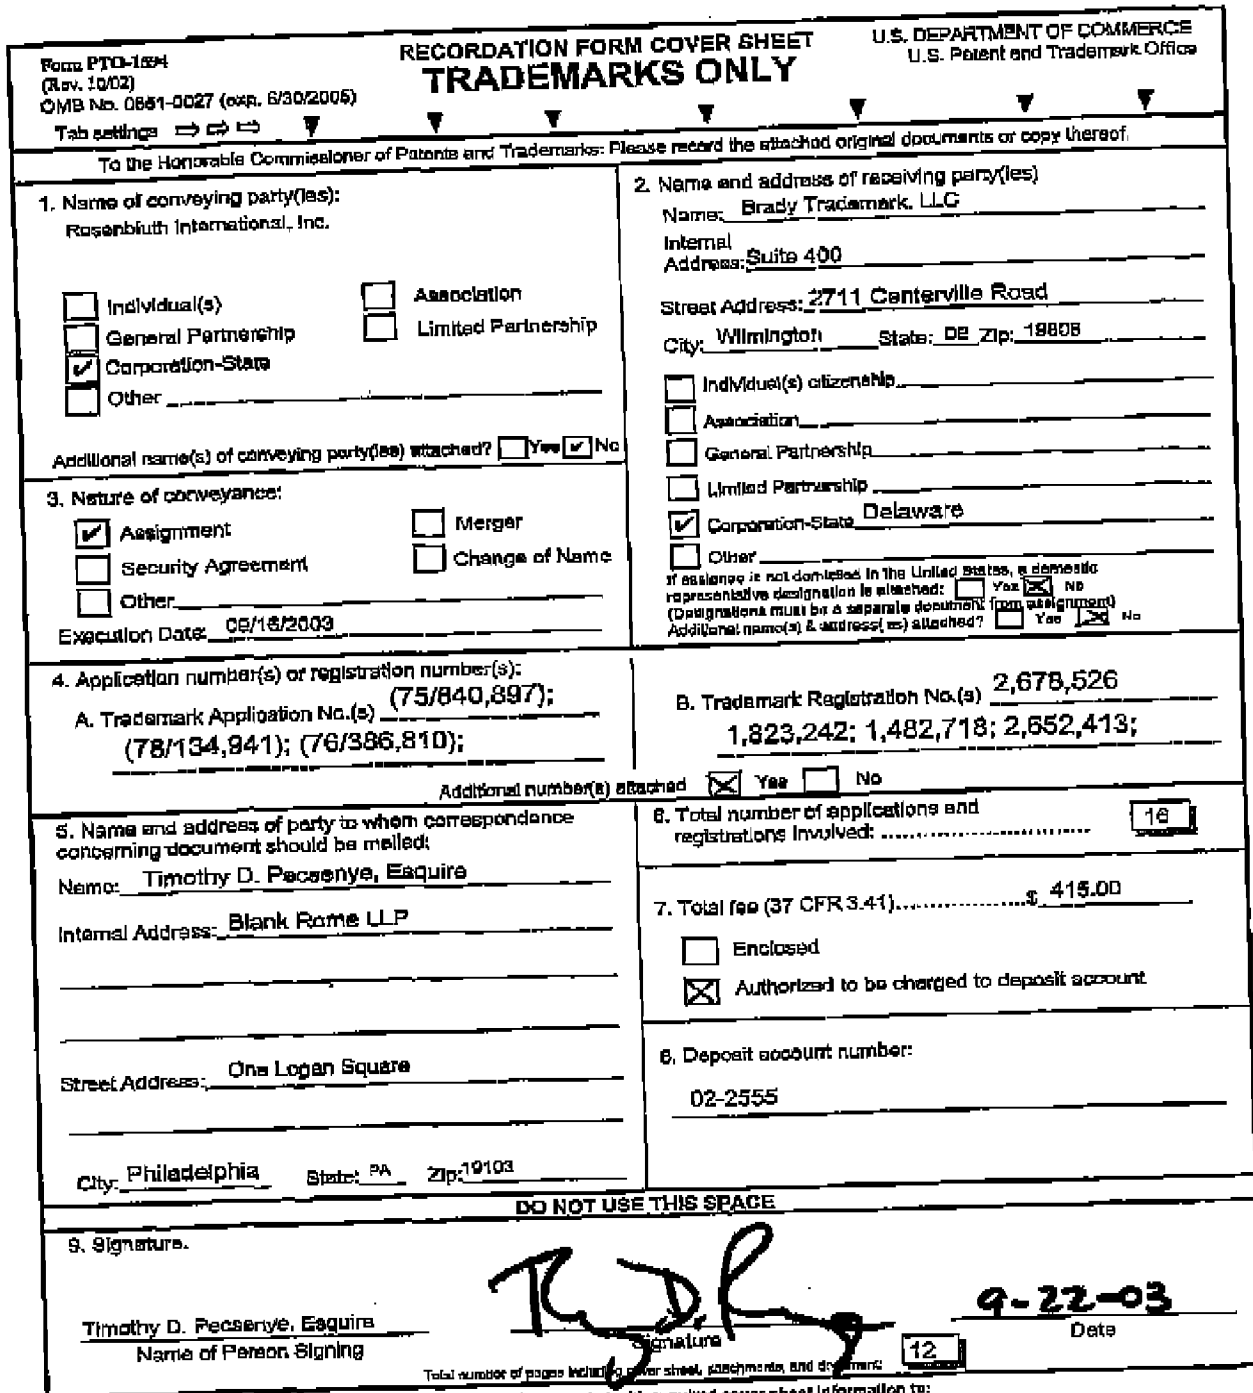 Form PTO-1594
(Rev. 10/02)
OMB No. 0651-0027 (exp. 6/30/2005)
Tab settings ⇨ ⇨ ⇨
RECORDATION FORM COVER SHEET
TRADEMARKS ONLY
U.S. DEPARTMENT OF COMMERCE
U.S. Patent and Trademark Office
To the Honorable Commissioner of Patents and Trademarks: Please record the attached original documents or copy thereof.
1. Name of conveying party(ies):
Rosenbluth International, Inc.
Individual(s)
Association
General Partnership
Limited Partnership
Corporation-State
Other
Additional name(s) of conveying party(ies) attached? Yes No
2. Name and address of receiving party(ies)
Name: Brady Trademark, LLC
Internal
Address: Suite 400
Street Address: 2711 Centerville Road
City: Wilmington State: DE Zip: 19808
Individual(s) citizenship
Association
General Partnership
Limited Partnership
Corporation-State Delaware
Other
If assignee is not domiciled in the United States, a domestic
representative designation is attached: Yes No
(Designations must be a separate document from assignment)
Additional name(s) & address(es) attached? Yes No
3. Nature of conveyance:
Assignment
Merger
Security Agreement
Change of Name
Other
Execution Date: 09/16/2003
4. Application number(s) or registration number(s):
A. Trademark Application No.(s) (75/840,897);
(78/134,941); (76/386,810);
B. Trademark Registration No.(s) 2,678,526
1,823,242; 1,482,718; 2,652,413;
Additional number(s) attached Yes No
5. Name and address of party to whom correspondence
concerning document should be mailed:
Name: Timothy D. Pecsenye, Esquire
Internal Address: Blank Rome LLP
Street Address: One Logan Square
City: Philadelphia State: PA Zip: 19103
6. Total number of applications and
registrations involved: 16
7. Total fee (37 CFR 3.41) $ 415.00
Enclosed
Authorized to be charged to deposit account
8. Deposit account number:
02-2555
DO NOT USE THIS SPACE
9. Signature.
Timothy D. Pecsenye, Esquire
Name of Person Signing
Signature
9-22-03
Date
Total number of pages including cover sheet, attachments, and document: 12